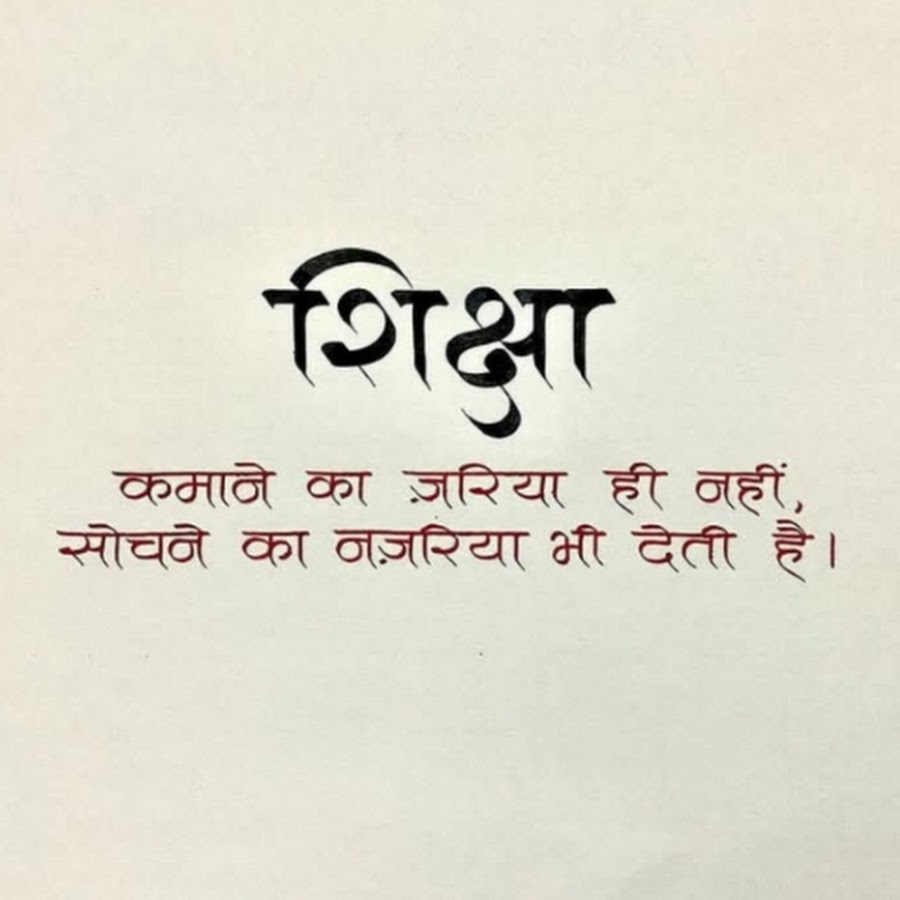 शिक्षा
कमाने का ज़रिया ही नहीं,
सोचने का नज़रिया भी देती है।